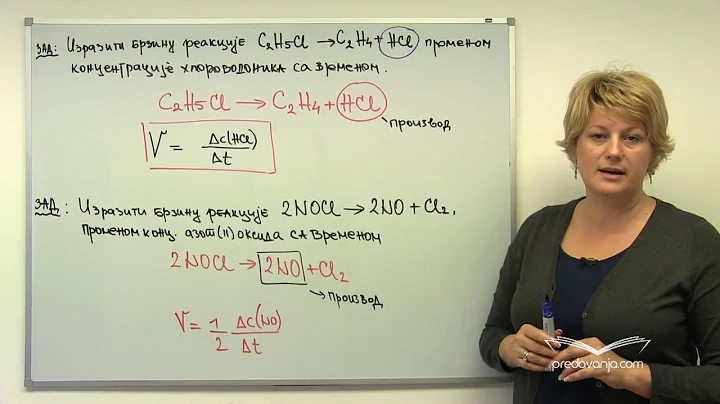 ЗАД: Изразити брзину реакције C2H5Cl → C2H4 + HCl променом
концентрације хлороводоника са временом.
C2H5Cl → C2H4 + HCl
производ
V = Δc(HCl)/Δt
ЗАД: Изразити брзину реакције 2NOCl → 2NO + Cl2,
променом конц. азот(II)оксида са временом
2NOCl → 2NO + Cl2
→ производ
V = 1/2 Δc(NO)/Δt
predavanja.com